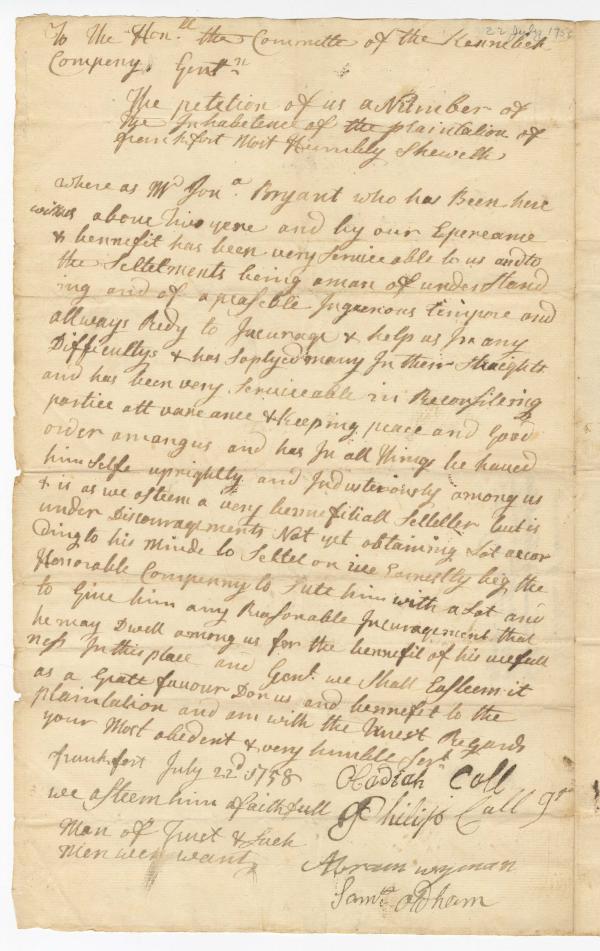 22 July 1758
To the Hon.ll the Committe of the Kennebek
Company. Gent.n
The petetion of us a Number of
the Inhabetence of the plaintation of
frankfort Most Humbly Sheweth
where as Mr Jon.a Bryant who has Been here
above two yere and by our Epereance
& bennefit has been very Serviceable to us and to
the Seltelments being a man of under Stand
ing and of a peaseble Ingenious timpore and
allways Redy to Incurage & help us In any
Difficultys & has Soplyed many In their Straights
and has been very Serviceable in Reconsilering
partice att vareance & Keeping peace and Good
order amang us and has In all things be haved
him Selfe uprightly and Industeriously among us
& is as we asteem a very bennefitiall Selteller but is
under Discouragements Not yet obtaining Lot accor
Ding to his Minde to Seltel on we Earnestly beg the
Honorable Compenny to Sute him with a Lot and
to Give him any Reasonable Incuragement that
he may Dwell among us for the bennefit of his usefull
ness In this place and Gent. we Shall Easteem it
as a Gratt favour Don us and bennefet to the
plaintation and am with the Regards
your Most obedent & very humble Serts
frankfort July 22d 1758
Obadiah Call
we asteem him a faithfull
Philip Call Jr
Man of Trust & Such
Men wee want
Abram wyman
Saml oldham